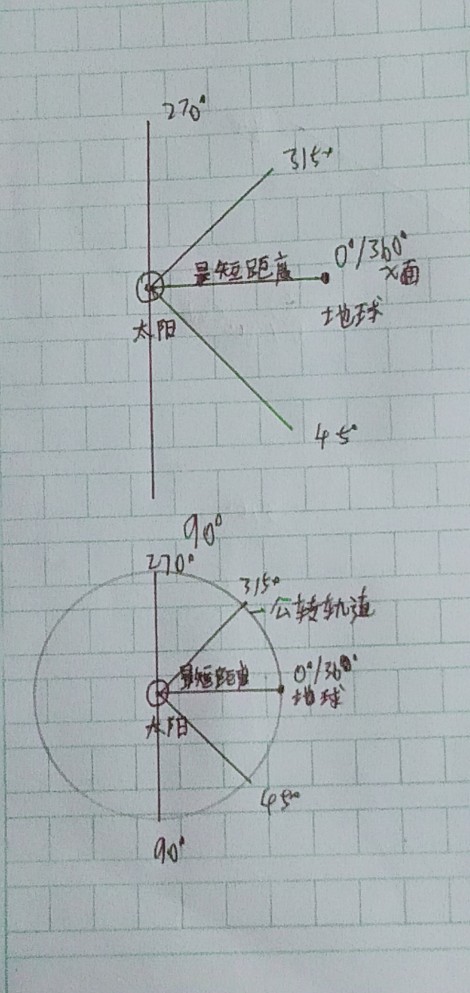 270°
315°
最短距离
0°/360°
X面
太阳
地球
45°
90°
270°
315°
公转轨道
最短距离
0°/360°
地球
太阳
45°
90°